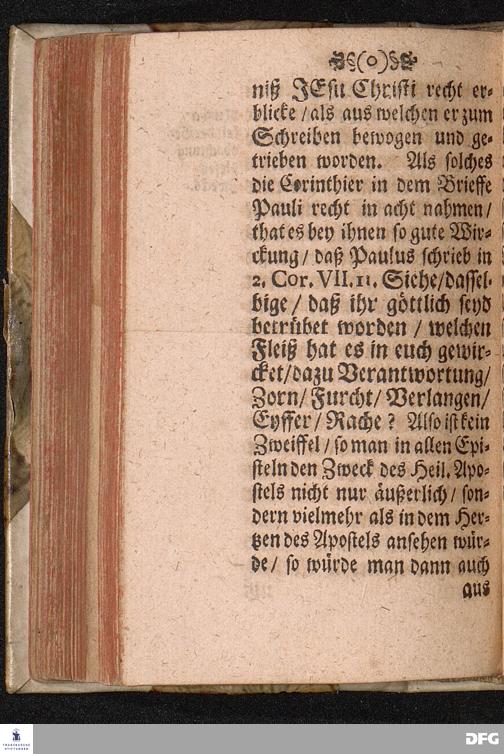 (o)
niß JEsu Christi recht er-
blicke / als aus welchen er zum
Schreiben bewogen und ge-
trieben worden. Als solches
die Corinthier in dem Brieffe
Pauli recht in acht nahmen /
that es bey ihnen so gute Wir-
ckung / daß Paulus schrieb in
2. Cor. VII. 11. Siehe / dassel-
bige / daß ihr göttlich seyd
betrübet worden / welchen
Fleiß hat es in euch gewir-
cket / dazu Verantwortung /
Zorn / Furcht / Verlangen /
Eyffer / Rache ? Also ist kein
Zweiffel / so man in allen Epi-
steln den Zweck des Heil. Apo-
stels nicht nur äußerlich / son-
dern vielmehr als in dem Her-
tzen des Apostels ansehen wür-
de / so würde man dann auch
aus
FRANCKESCHE
STIFTUNGEN
DFG